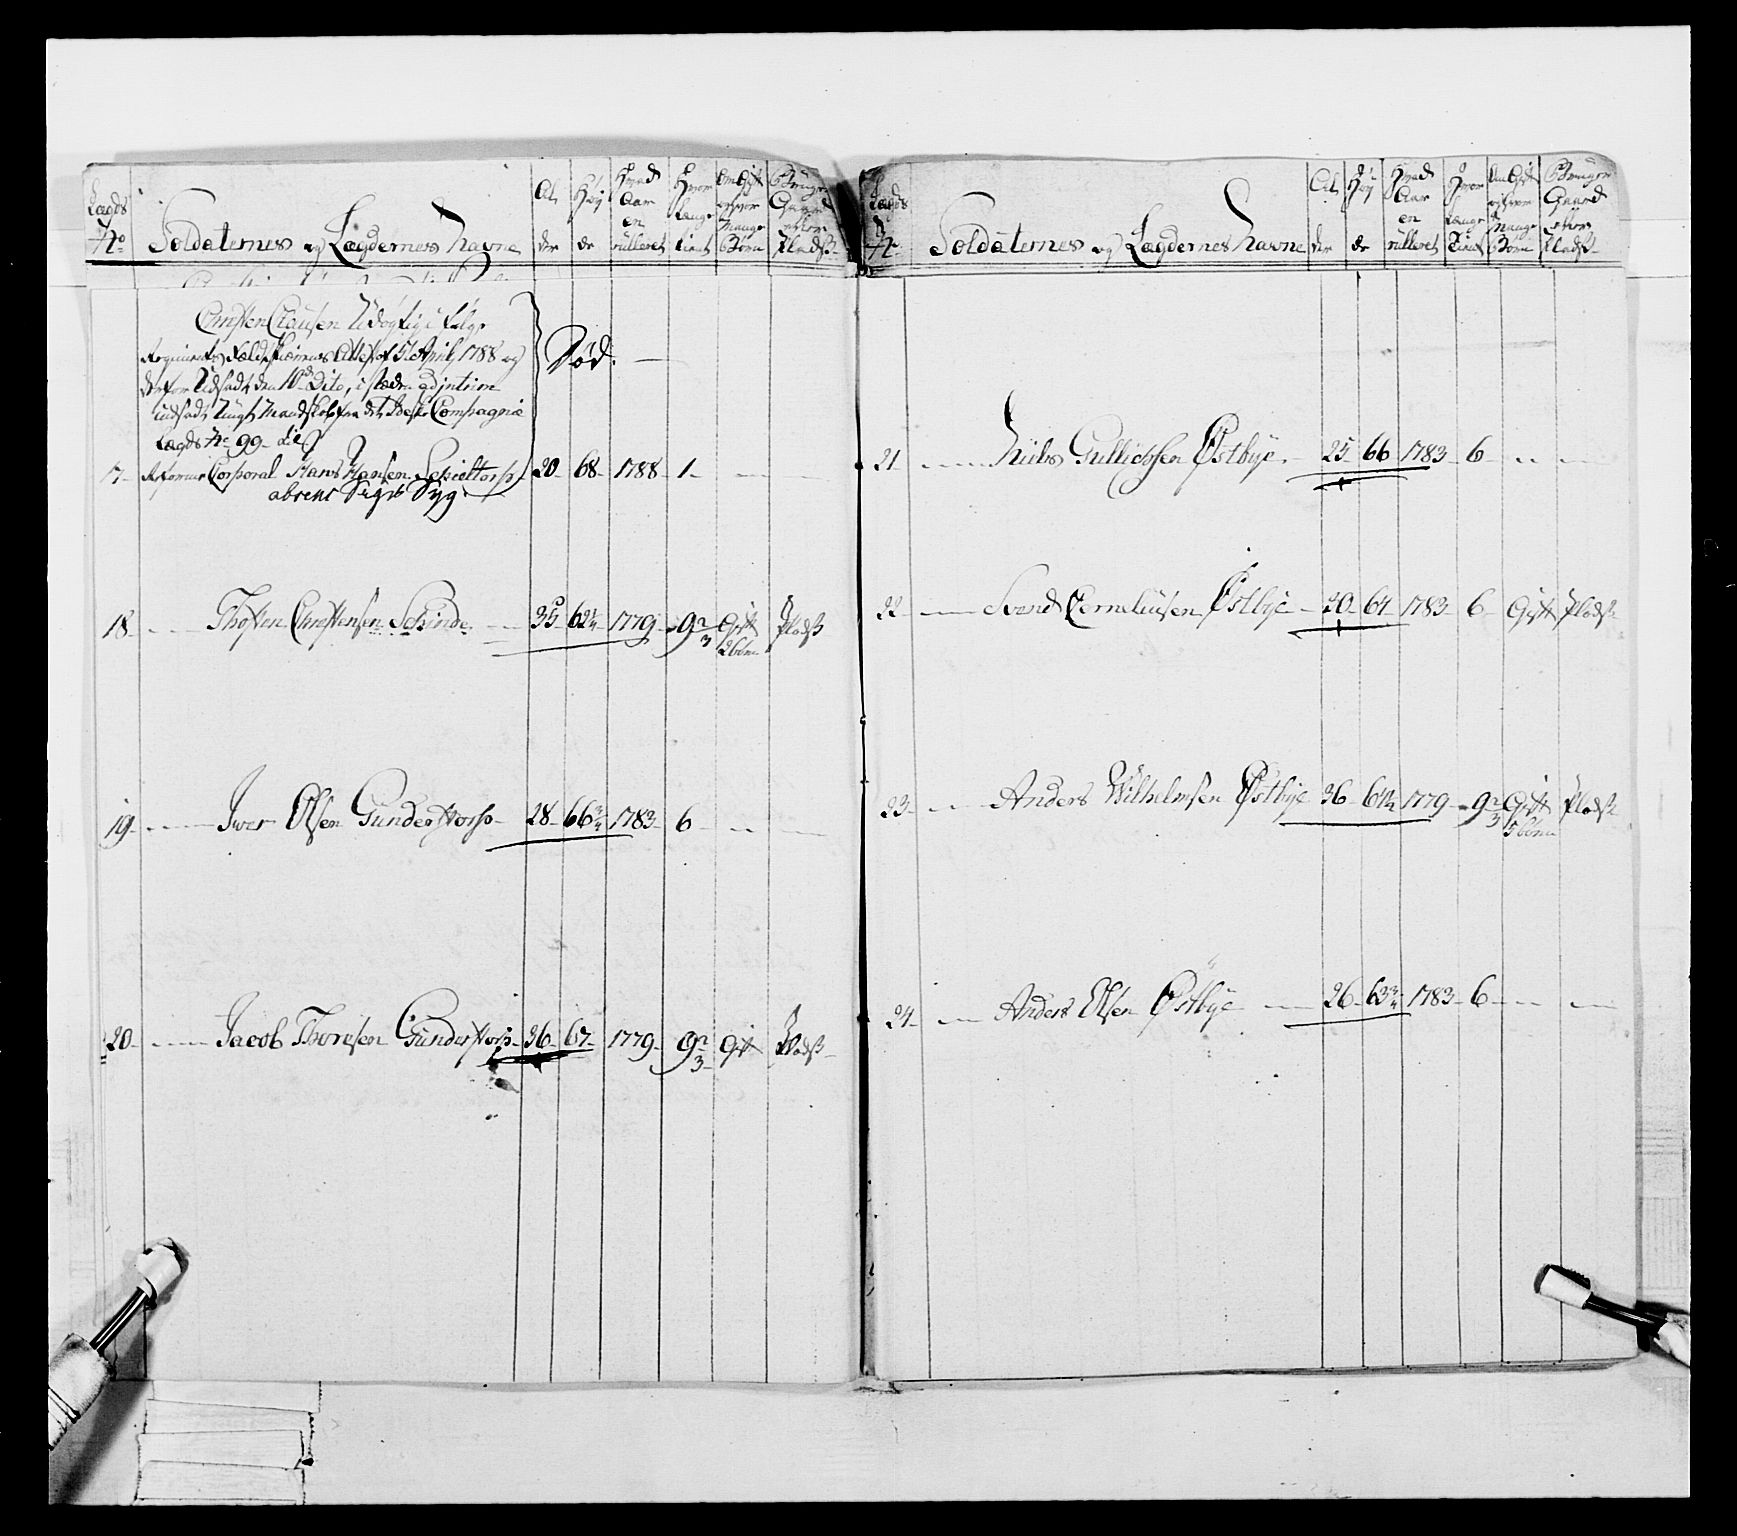 Lægds No Soldaternes og Lægdernes Navne Al der Høj de Hvad Aar en rulleret Hvor længe tient Om Gift og hvor Mange Børn Bruger Gaard eller Pladß
Christen Clausen Udøgtig i følge
Regiments Feldskiærens Attest af 5t April 1788 og
derfor Udsadt den 10de Dito, i stæden adjntrim
udsadt Ungt Mandskab fra det Compagnie
Lægds No 99 Død.
17 Reformeer Corporal Hans Hansen 20 68 1788 1
absent Syg
18 Thosten Christensen Schinde 35 62¼ 1779 9 2/3 Gift 2 börn Pladß
19 Iver Olsen Gunderstorp 28 66¾ 1783 6
20 Jacob Thoresen Gunderstorp 36 67 1779 9 2/3 Gift Pladß
Lægds No Soldaternes og Lægdernes Navne Al der Høj de Hvad Aar en rulleret Hvor længe Tient Om Gift og hvor Mange Börn Bruger Gaard eller Pladß
21 Niels Gullichsen Østbye 25 66 1783 6
22 Svend Cornelius­en Østbye 20 64 1783 6 Gift Pladß
23 Anders Wilhelmsen Østbye 36 64½ 1779 9 2/3 Gift 5 börn Pladß
24 Anders Olsen Østbye 26 63¾ 1783 6